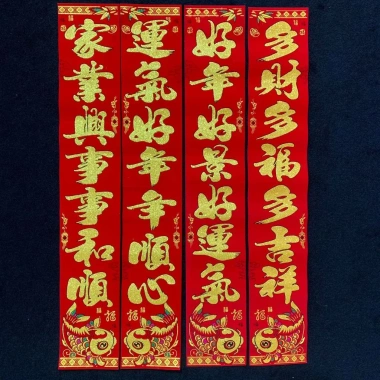 多財多福多吉祥
好年好景好運氣
運氣好年年順心
家業興事事和順
福
福
福
福